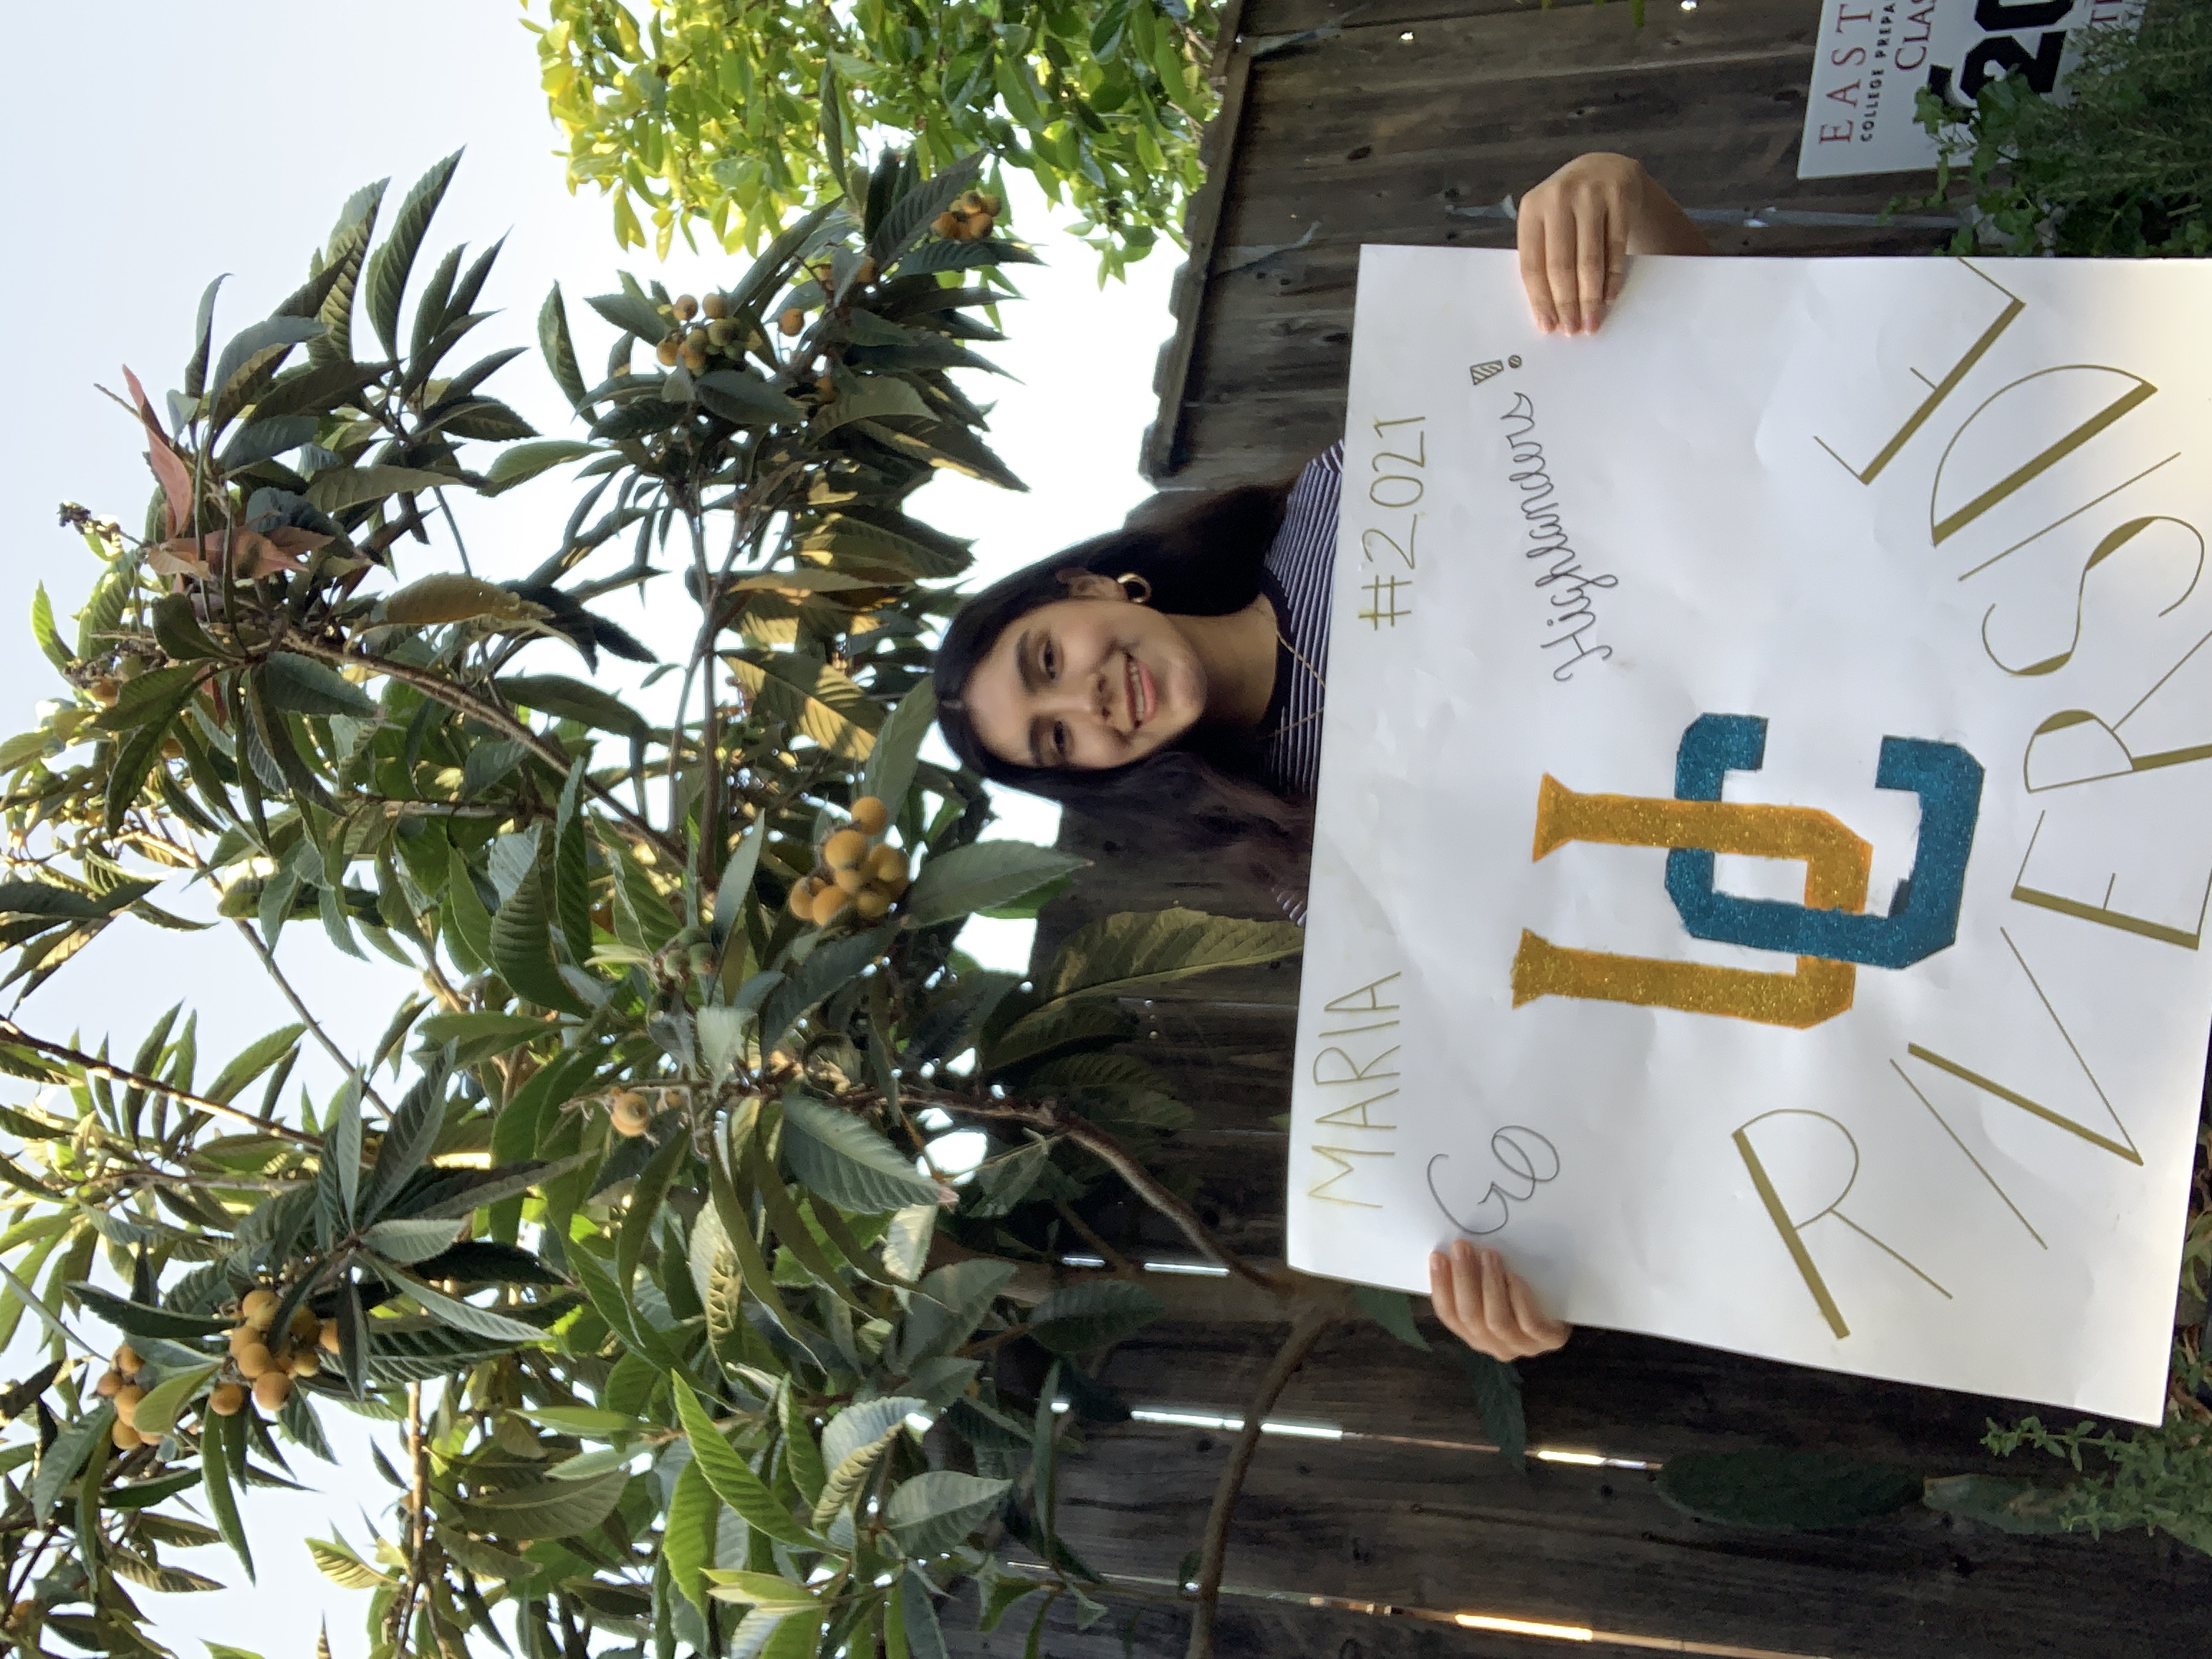 MARIA #2021
GO Highlanders!
UC
RIVERSIDE
EAST
COLLEGE PREPA
CLAS
20